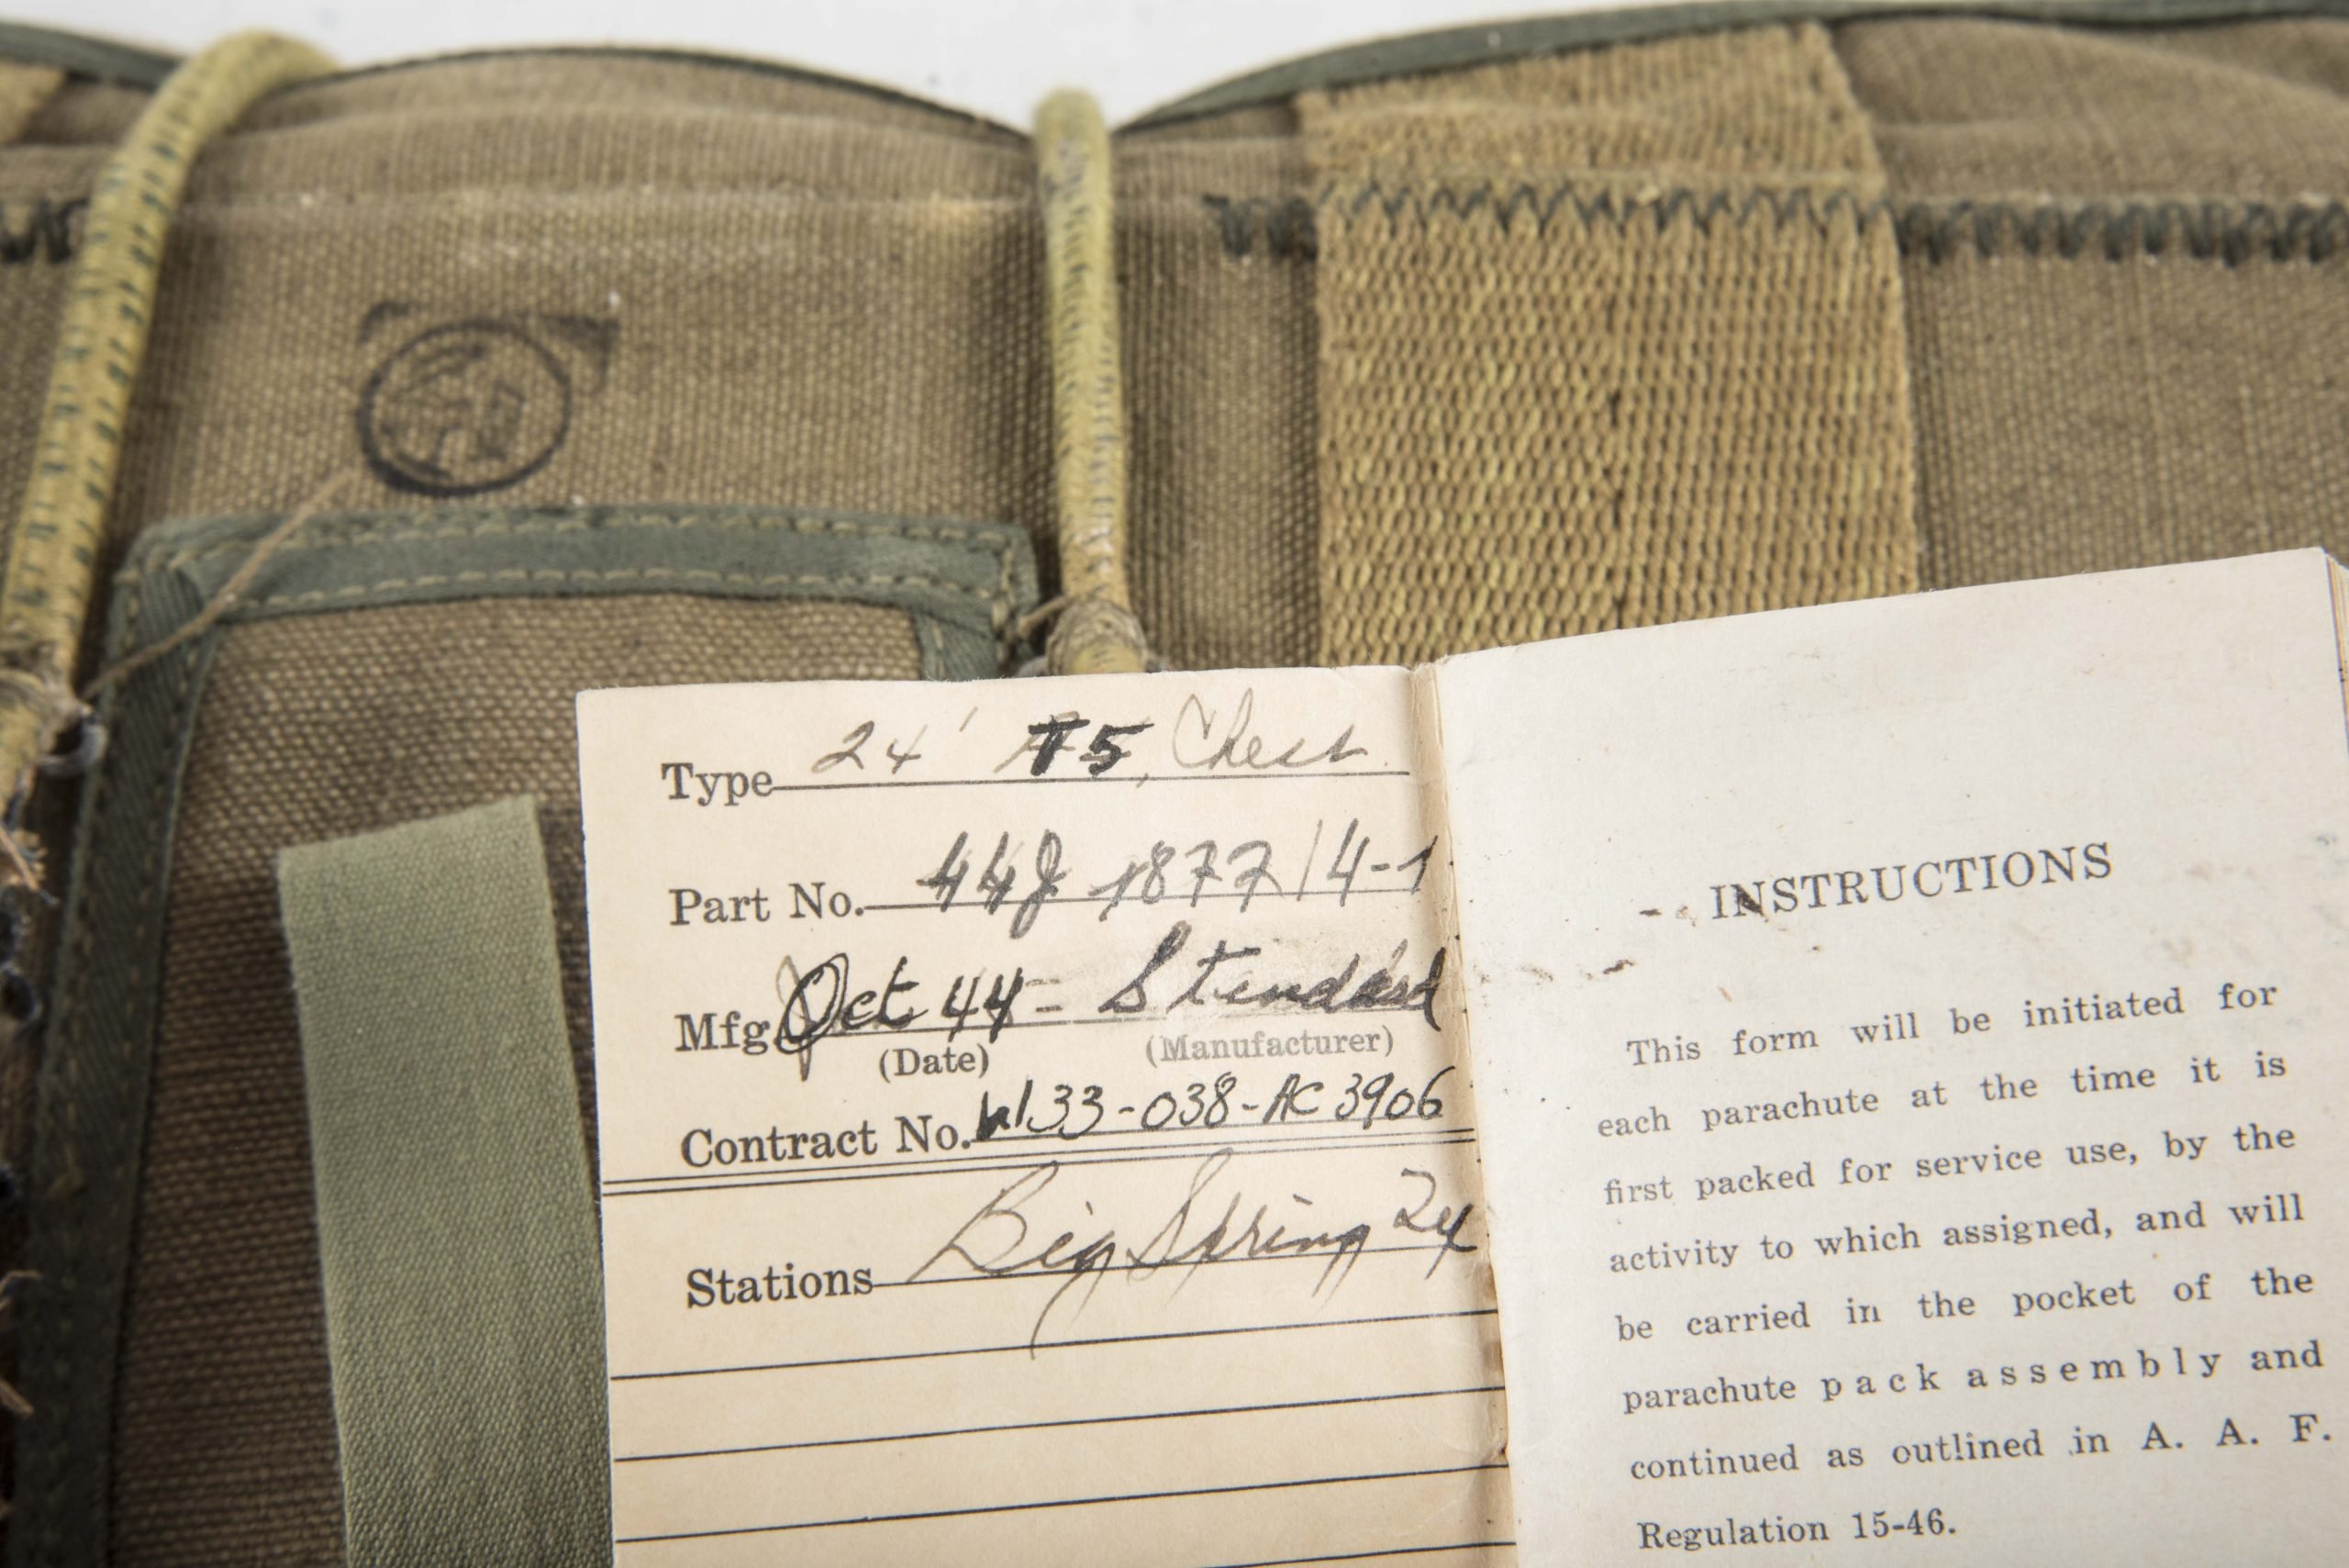 Type 24' T5, Chest
Part No. 44J 18777/4-1
Mfg Oct 44 - Standard
(Date) (Manufacturer)
Contract No. W33-038-AC 3906
Stations Big Spring
INSTRUCTIONS
This form will be initiated for
each parachute at the time it is
first packed for service use, by the
activity to which assigned, and will
be carried in the pocket of the
parachute pack assembly and
continued as outlined in A. A. F.
Regulation 15-46.